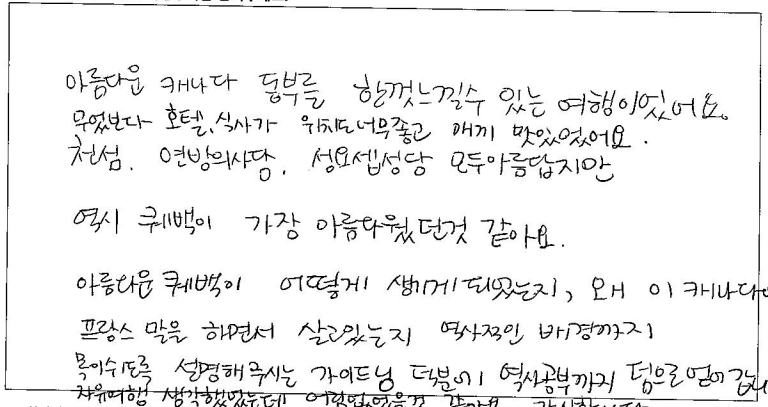 아름다운 캐나다 동부를 한껏느낄수 있는 여행이었어요.
무엇보다 호텔,식사가 위치도너무좋고 매끼 맛있었어요.
천섬. 연방의사당. 성요셉성당 모두아름답지만
역시 퀘백이 가장 아름다웠던것 같아요.
아름다운퀘백이 어떻게 생기게되었는지, 왜 이 캐나다
프랑스 말을 하면서 살고있는지 역사적인 배경까지
목이쉬도록 설명해주시는 가이드님 덕분에 역사공부까지 덤으로 얻어갑니
자유여행 생각했었는데